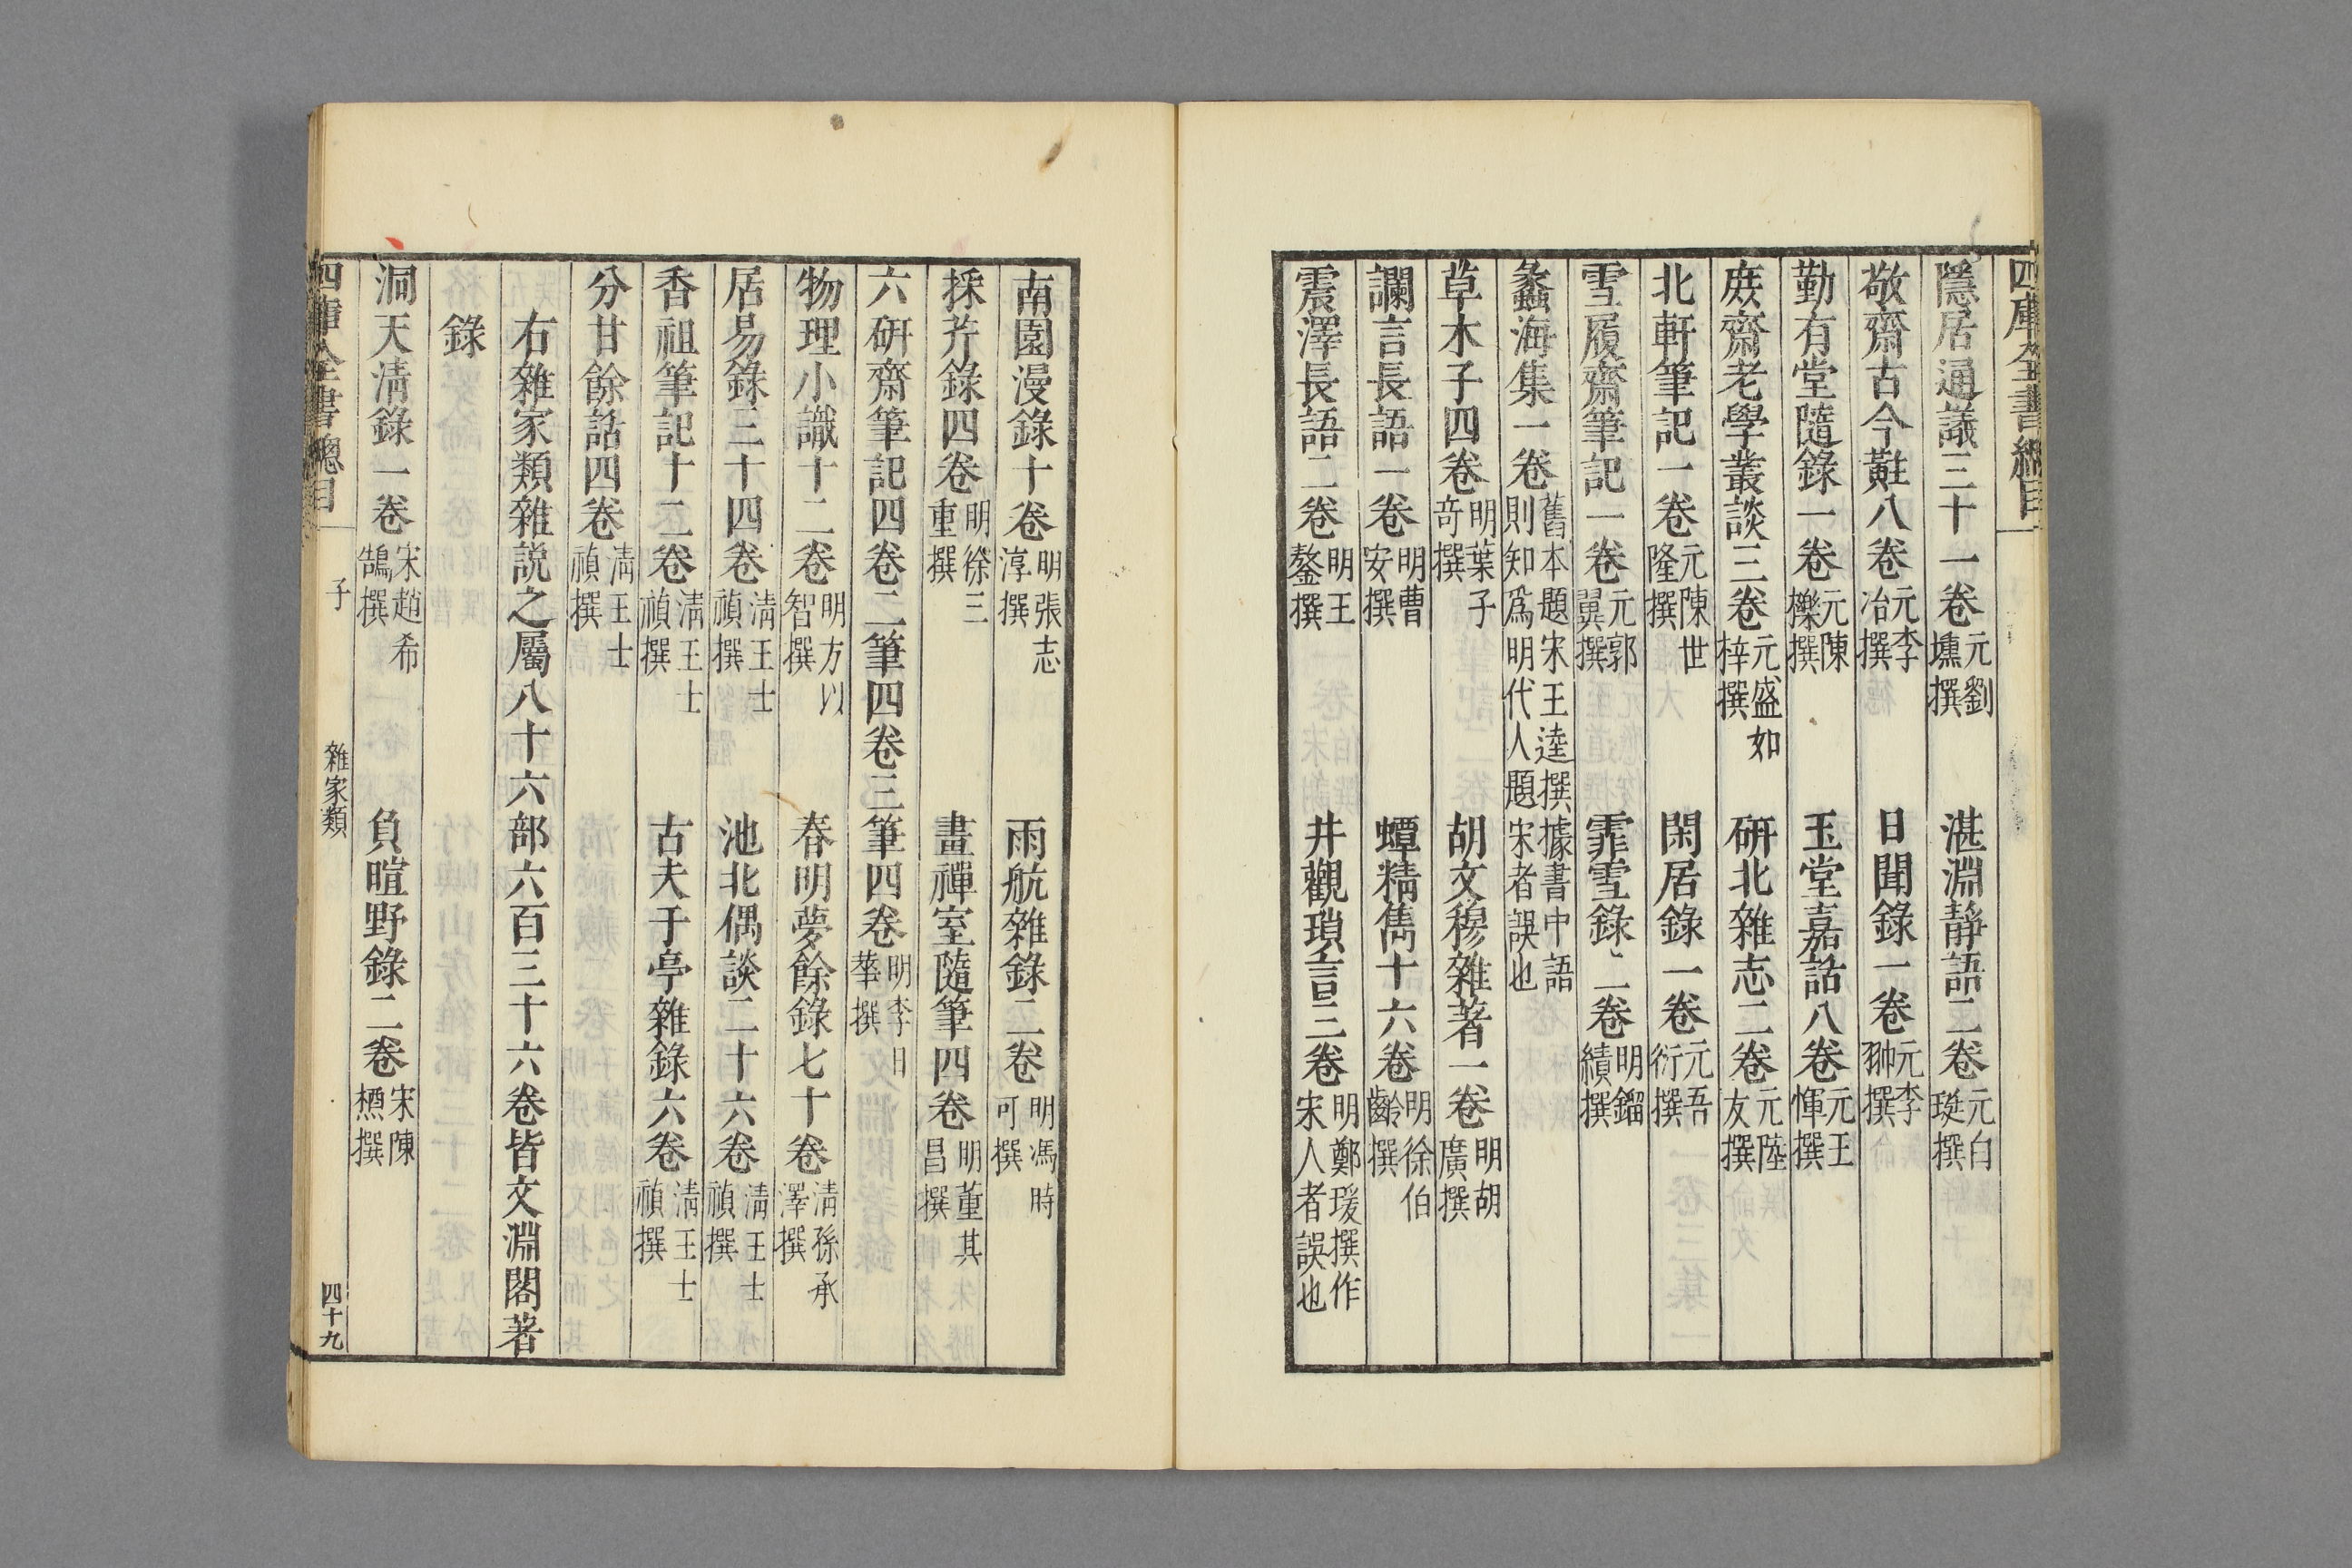 四庫全書總目
隱居通議三十一卷元劉壎撰 湛淵靜語二卷元白珽撰
敬齋古今黈八卷元李冶撰 日聞錄一卷元李翀撰
勤有堂隨錄一卷元陳櫟撰 玉堂嘉話八卷元王惲撰
庶齋老學叢談三卷元盛如梓撰 研北雜志二卷元陸友撰
北軒筆記一卷元陳世隆撰 閑居錄一卷元吾衍撰
雪履齋筆記一卷元郭翼撰 霏雪錄二卷明鎦績撰
蠡海集一卷舊本題宋王逵撰據書中語則知爲明代人題宋者誤也
草木子四卷明葉子奇撰 胡文穆雜著一卷明胡廣撰
讕言長語一卷明曹安撰 蟫精雋十六卷明徐伯齡撰
震澤長語二卷明王鏊撰 井觀瑣言三卷明鄭瑗撰作宋人者誤也
南園漫錄十卷明張志淳撰 雨航雜錄二卷明馮時可撰
採芹錄四卷明徐三重撰 畫禪室隨筆四卷明董其昌撰
六研齋筆記四卷二筆四卷三筆四卷明李日華撰
物理小識十二卷明方以智撰 春明夢餘錄七十卷清孫承澤撰
居易錄三十四卷清王士禎撰 池北偶談二十六卷清王士禎撰
香祖筆記十二卷清王士禎撰 古夫于亭雜錄六卷清王士禎撰
分甘餘話四卷清王士禎撰
右雜家類雜說之屬八十六部六百三十六卷皆文淵閣著
錄
洞天清錄一卷宋趙希鵠撰 負暄野錄二卷宋陳槱撰
四庫全書總目 子 雜家類 四十九